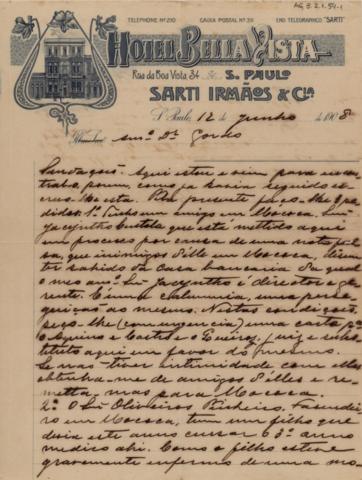 AG 3.2.1.54-1
TELEPHONE Nº 210 CAIXA POSTAL Nº 311 END. TELEGRAPHICO "SARTI"
HOTEL BELLA VISTA
Rua da Boa Vista 34 S. PAULO
SARTI IRMÃOS & Cia
S. Paulo, 12 de junho de 1908
Dr. Gordo
Saudações. Aqui estou e vim para
, porem, como ja havia seguido
esta. Pela presente faço-lhe 2 pe
didos: 1º Tenho um amigo em Mococa, Snr
Jacyntho que está mettido aqui
um processo por causa de uma nota fal
sa, que inimigos delle em Mococa, dizem
ter sahido da casa bancaria da qual
o meu amº Snr Jacyntho é director e ge
rente. É uma calumnia, uma perse
guição ao mesmo. Nestas condições,
peço-lhe (com urgencia) uma carta pª
o Aquino e Castro e o Queiroz, juiz e subs
tituto aqui em favor do mesmo.
Se não tiver intimidade com elles
obtenha-me de amigos delles e re
metta-mas para Mococa.
2º O Snr Oliveiros Pinheiro, fazendei
ro em Mococa, tem um filho que
devia este anno cursar o 3º anno
medico ahi. Como o filho esteve
gravemente enfermo de uma mo-